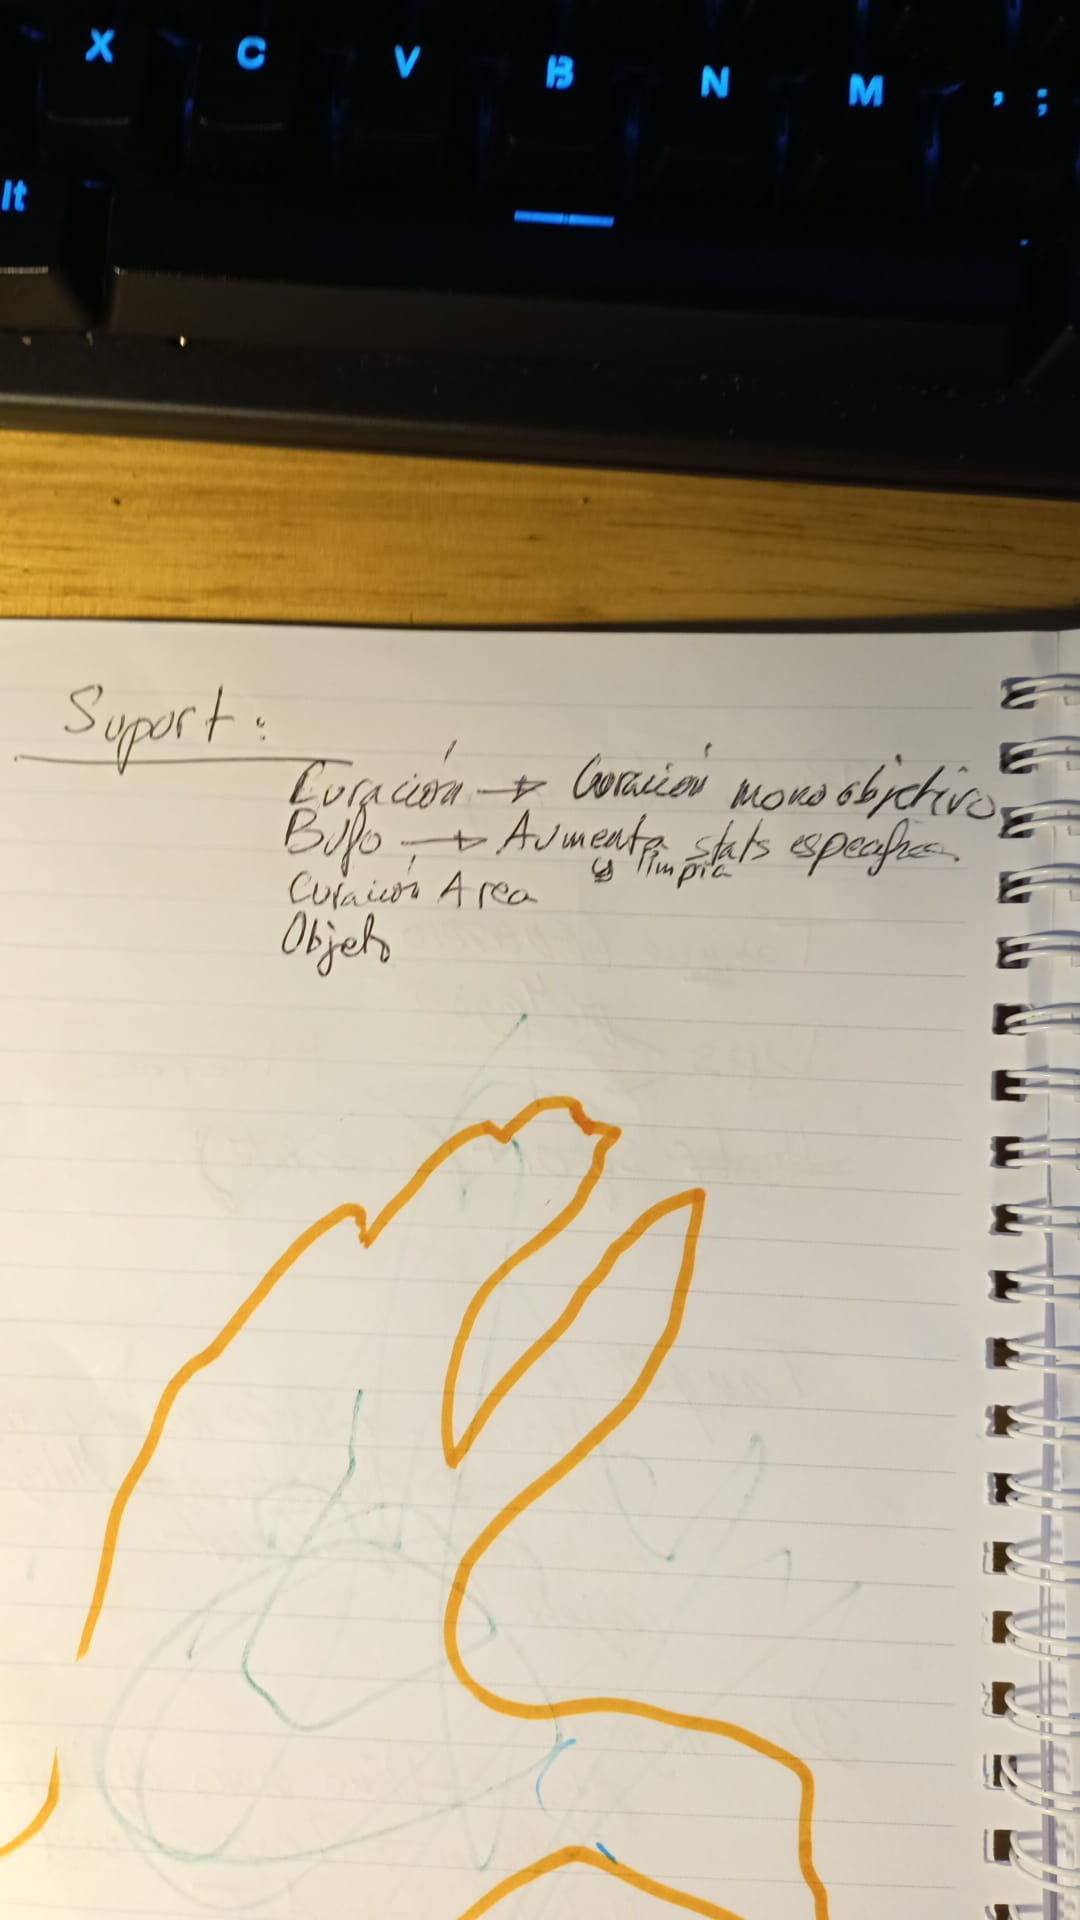 X C V B N M , ;
lt
Suport:
Curación → Curación mono objetivo
Bufo → Aumenta stats especificos
y limpia
Curación Area
Objeto